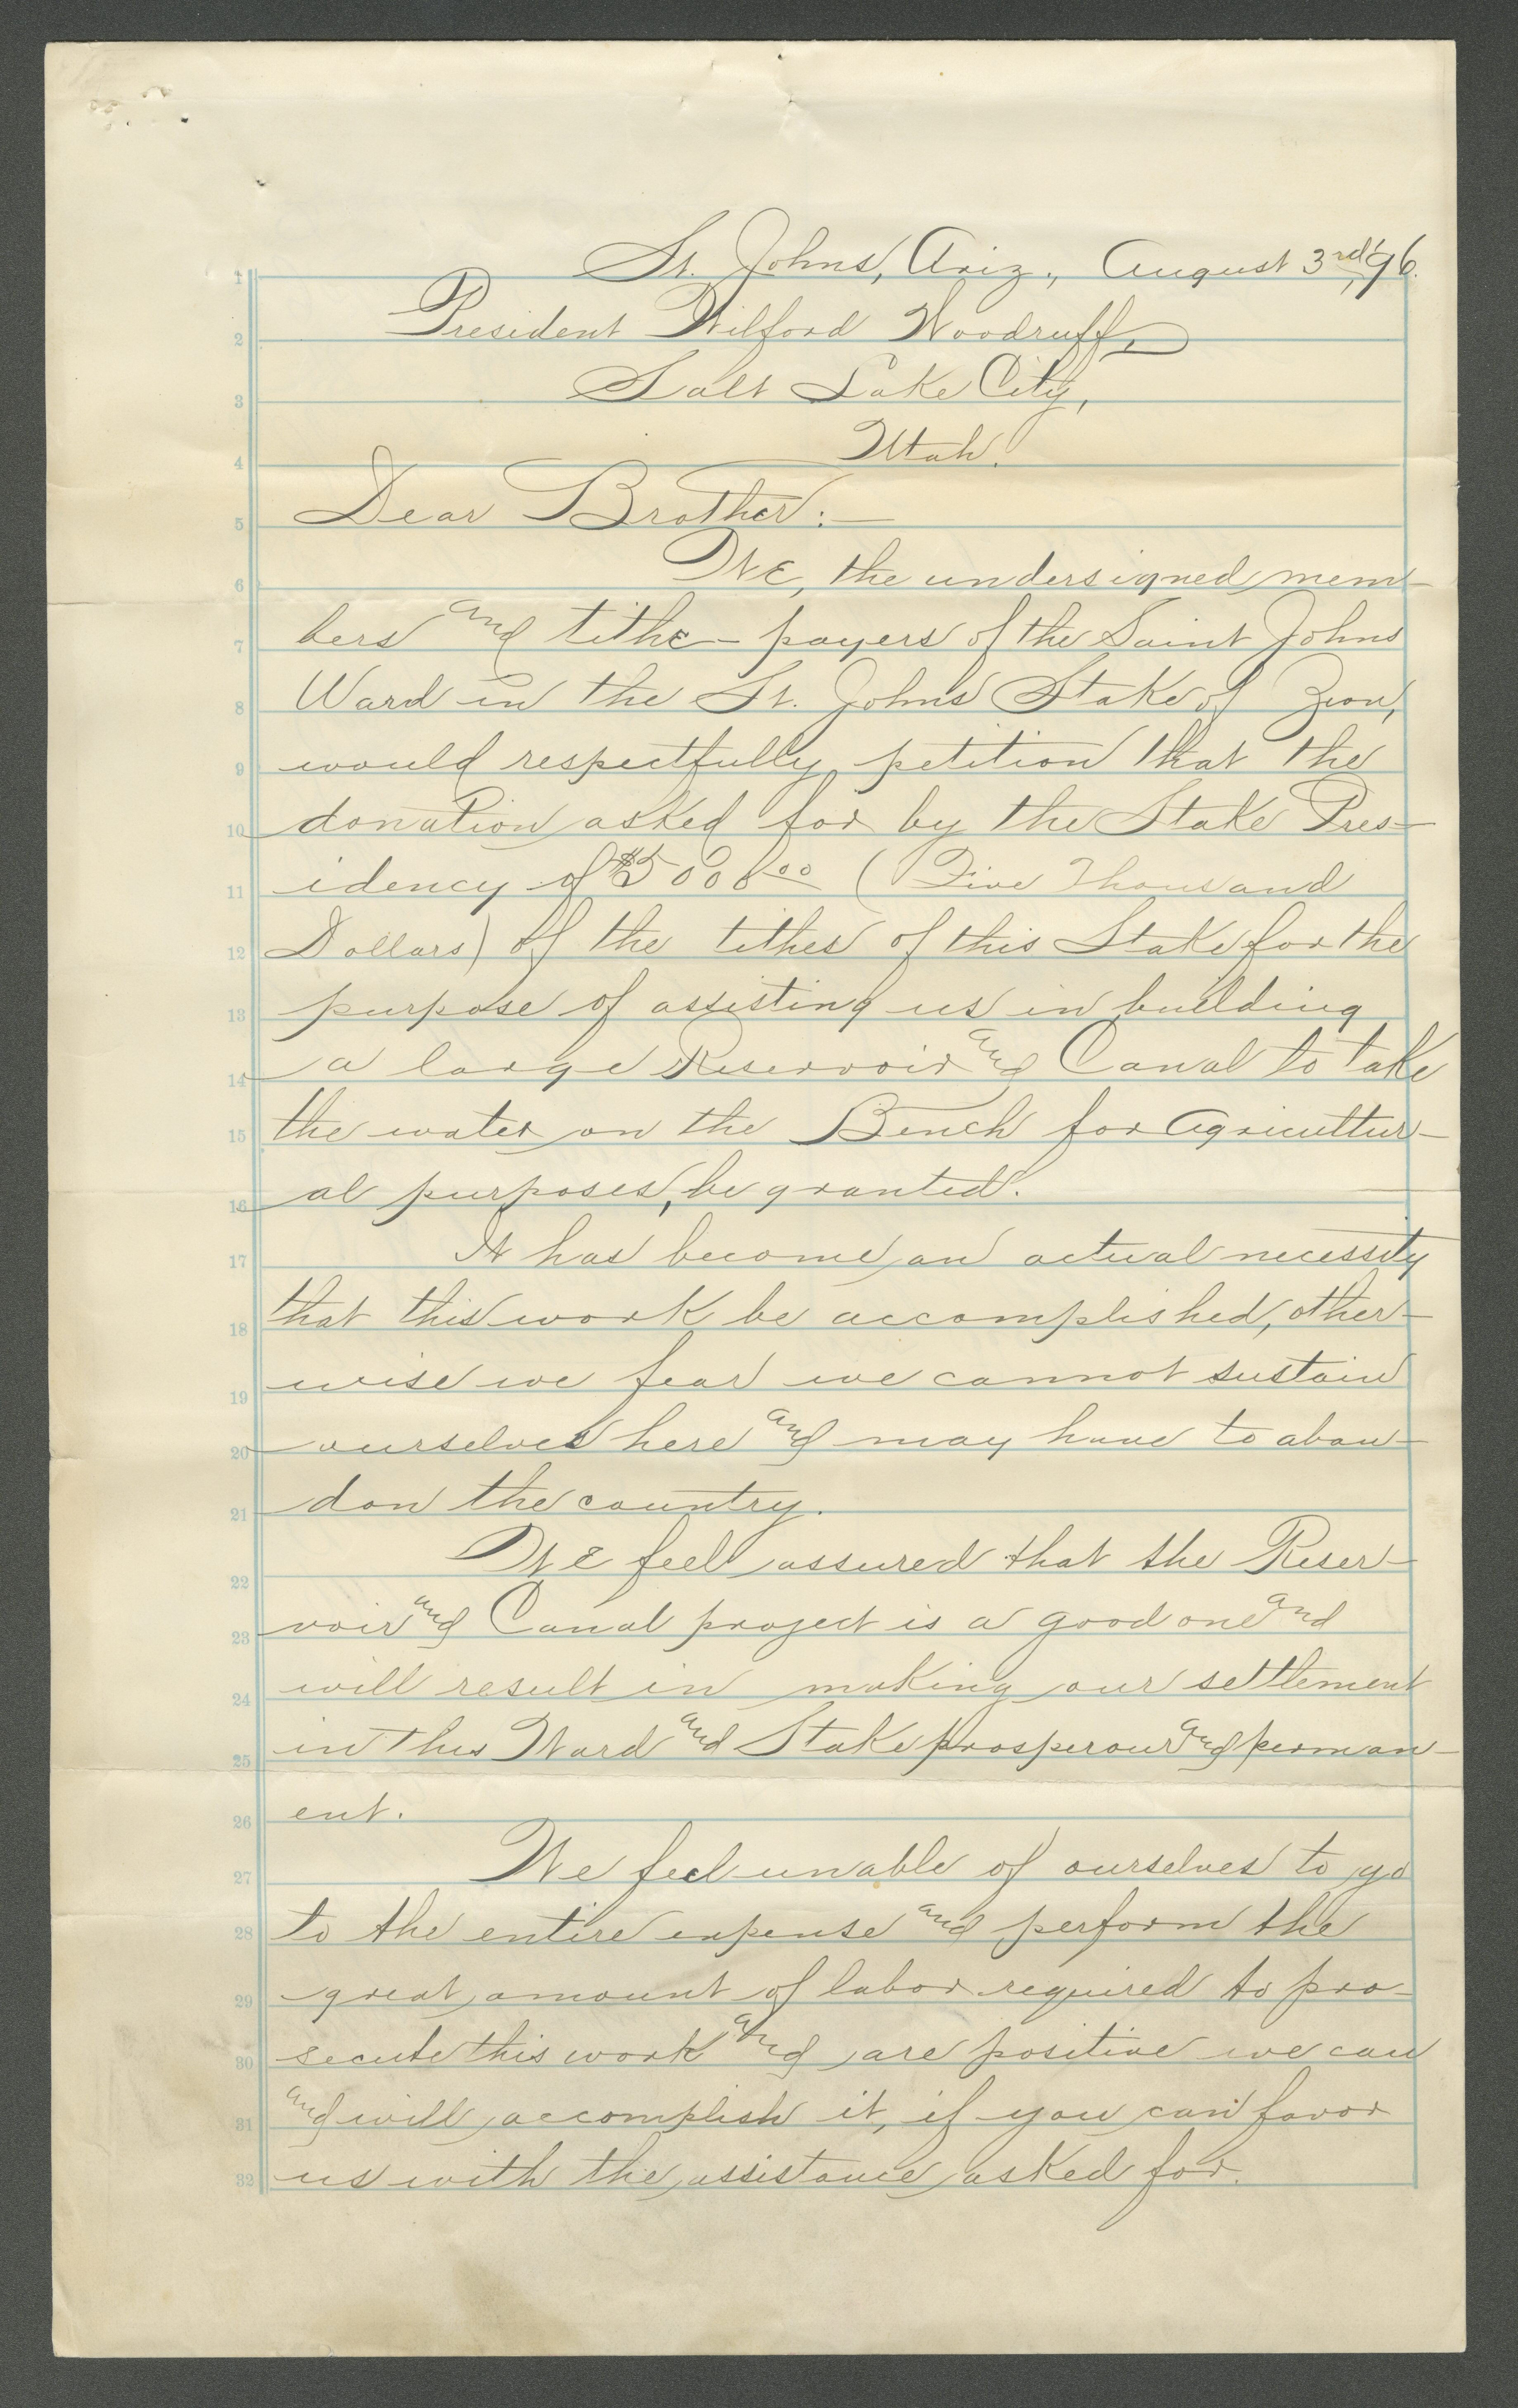 St. Johns, Ariz., August 3rd, '96.
1
President Wilford Woodruff,
2
Salt Lake City,
3
Utah.
4
Dear Brother:—
5
We, the undersigned mem-
6
bers and tithe-payers of the Saint Johns
7
Ward in the St. Johns Stake of Zion,
8
would respectfully petition that the
9
donation asked for by the Stake Pres-
10
idency of $5000.00 (Five Thousand
11
Dollars) of the tithes of this Stake for the
12
purpose of assisting us in building
13
a large Reservoir and Canal to take
14
the water on the Bench for Agricultur-
15
al purposes, be granted.
16
It has become an actual necessity
17
that this work be accomplished, other-
18
wise we fear we cannot sustain
19
ourselves here and may have to aban-
20
don the country.
21
We feel assured that the Reser-
22
voir and Canal project is a good one and
23
will result in making our settlement
24
in this Ward and Stake prosperous and perman-
25
ent.
26
We feel unable of ourselves to go
27
to the entire expense and perform the
28
great amount of labor required to pro-
29
secute this work and are positive we can
30
and will accomplish it, if you can favor
31
us with the assistance asked for.
32